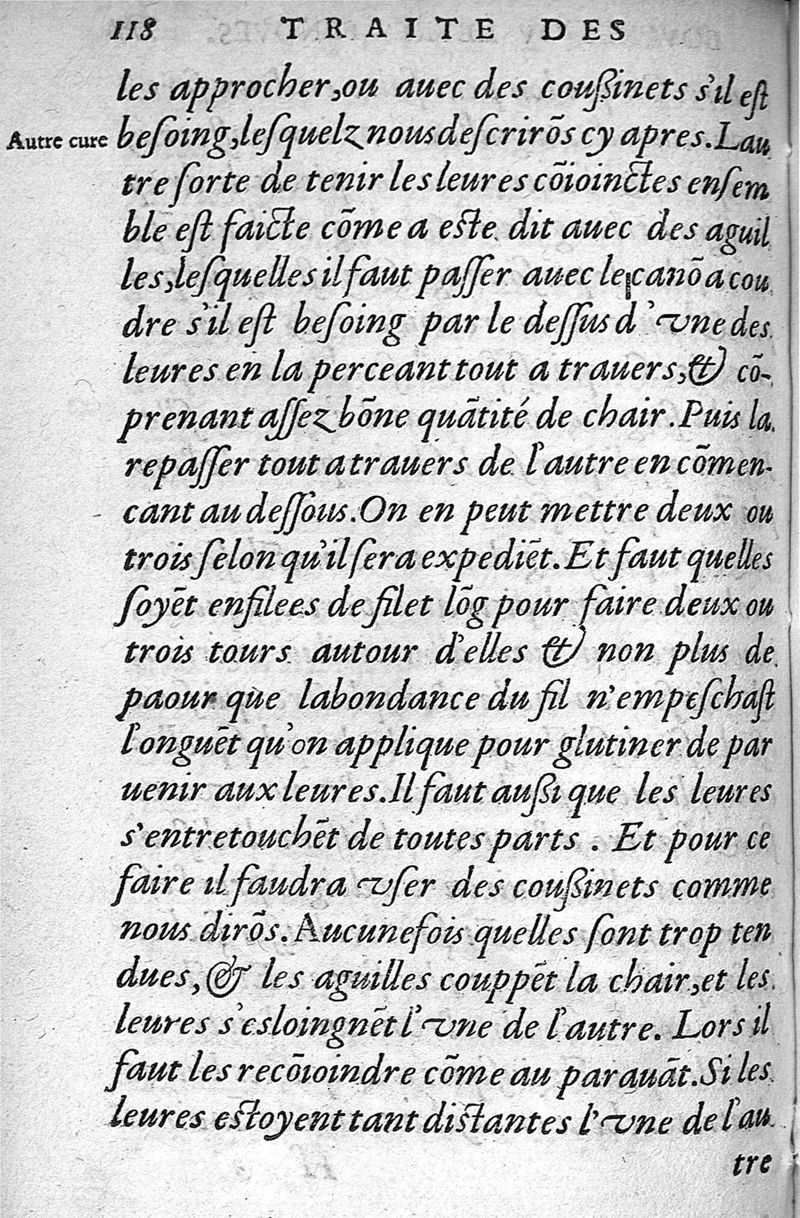 118 TRAITE DES
les approcher, ou auec des coußinets s'il eſt
Autre cure
beſoing, leſquelz nous deſcrirõs cy apres. Lau
tre ſorte de tenir les leures cõioinctes enſem
ble eſt faicte cõme a eſte dit auec des aguil
les, leſquelles il faut paſſer auec le canõ a cou
dre s'il eſt beſoing par le deſſus d'vne des
leures en la perceant tout a trauers, & cõ-
prenant aſſez bõne quãtité de chair. Puis la
repaſſer tout a trauers de l'autre en cõmen-
cant au deſſous. On en peut mettre deux ou
trois ſelon qu'il ſera expediẽt. Et faut quelles
ſoyẽt enfilees de filet lõg pour faire deux ou
trois tours autour d'elles & non plus de
paour que labondance du fil n'empeſchaſt
l'onguẽt qu'on applique pour glutiner de par
uenir aux leures. Il faut außi que les leures
s'entretouchẽt de toutes parts . Et pour ce
faire il faudra vſer des coußinets comme
nous dirõs. Aucunefois quelles ſont trop ten
dues, & les aguilles couppẽt la chair, et les
leures s'esloingnẽt l'vne de l'autre. Lors il
faut les recõioindre cõme au parauãt. Si les
leures eſtoyent tant diſtantes l'vne de l'au
tre